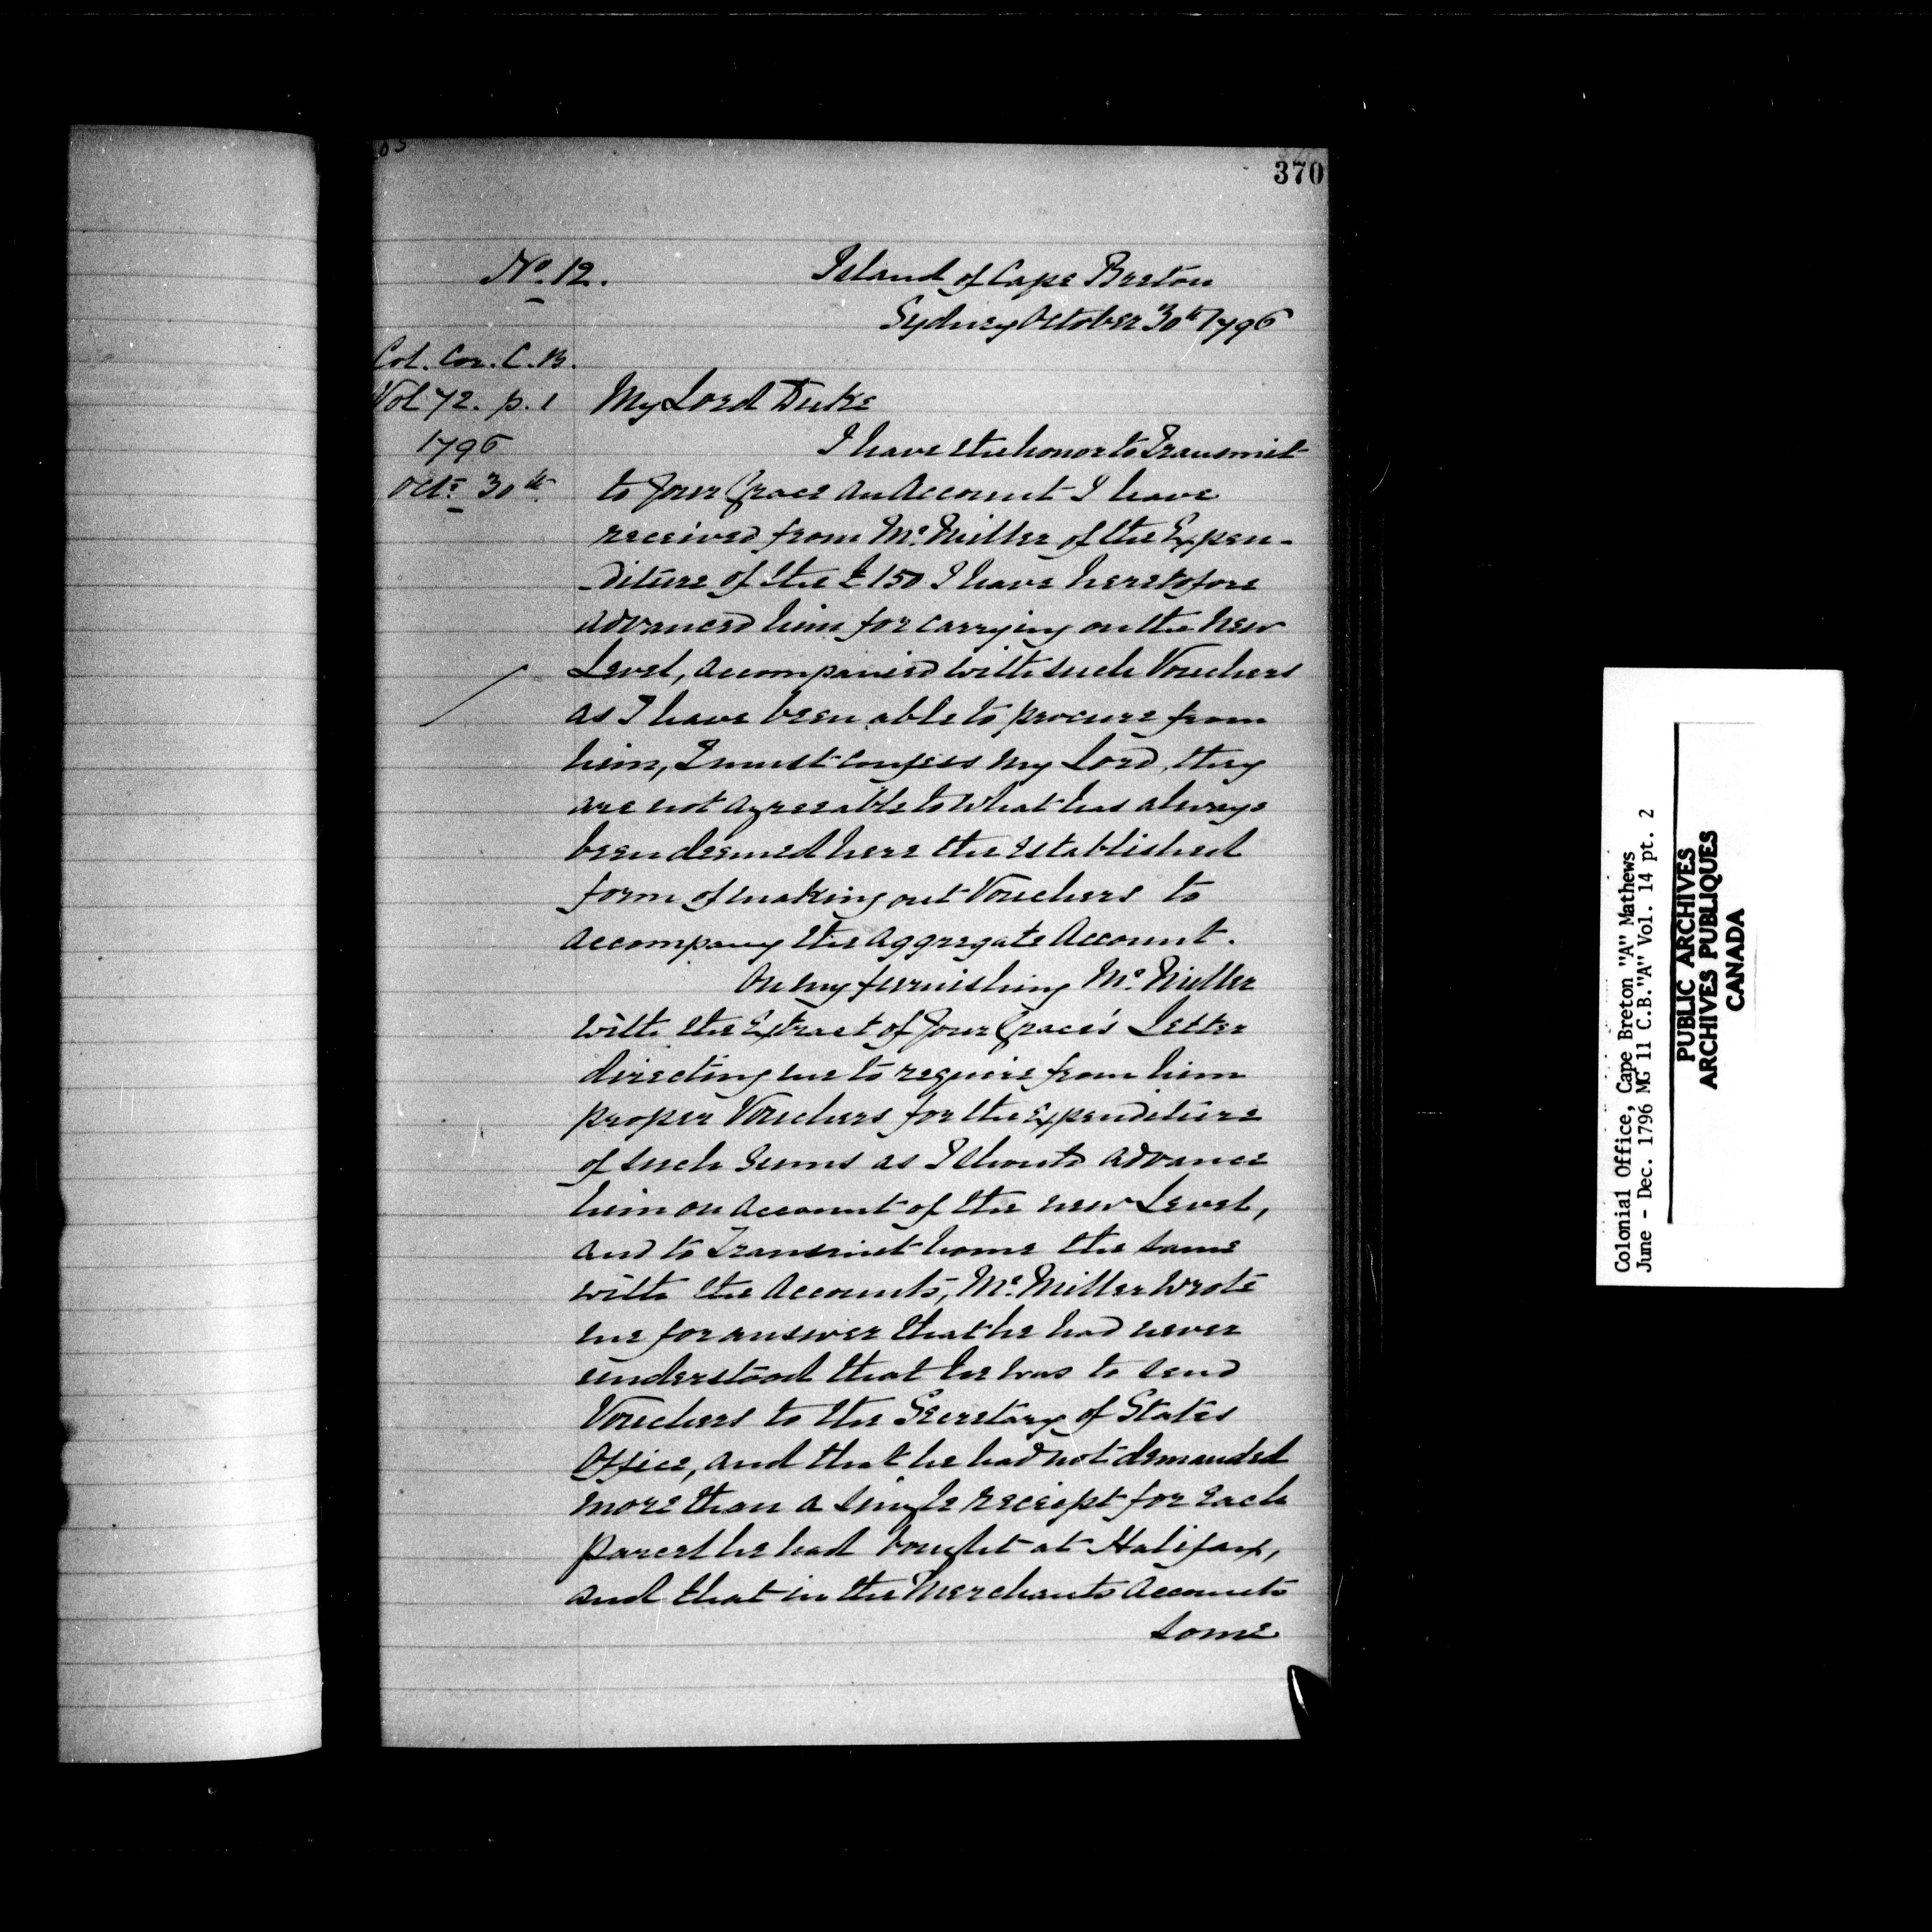 370
No. 12.
Island of Cape Breton
Sydney October 30th 1796
Col. Cor. C. B.
Vol 72. p. 1
1796
Octr 30th
My Lord Duke
I have the honor to Transmit
to Your Grace an Account I have
received from Mr. Miller of the Expen-
-diture of the £150 I have heretofore
advanced him for carrying on the New
Level, accompanied with such Vouchers
as I have been able to procure from
him, I must confess My Lord, they
are not agreeable to what has always
been deemed here the established
form of making out Vouchers to
accompany the aggregate Account.
On my furnishing Mr. Miller
with the Extract of Your Grace's Letter
directing me to require from him
proper Vouchers for the Expenditure
of such Sums as I should advance
him on account of the new Level,
and to Transmit home the same
with the Accounts, Mr. Miller wrote
me for answer that he had never
understood that he was to send
Vouchers to the Secretary of States
Office, and that he had not demanded
more than a single receipt for each
parcel he had bought at Halifax,
and that in the Merchants Accounts
some
Colonial Office, Cape Breton "A" Mathews
June - Dec. 1796 MG 11 C.B."A" Vol. 14 pt. 2
PUBLIC ARCHIVES
ARCHIVES PUBLIQUES
CANADA